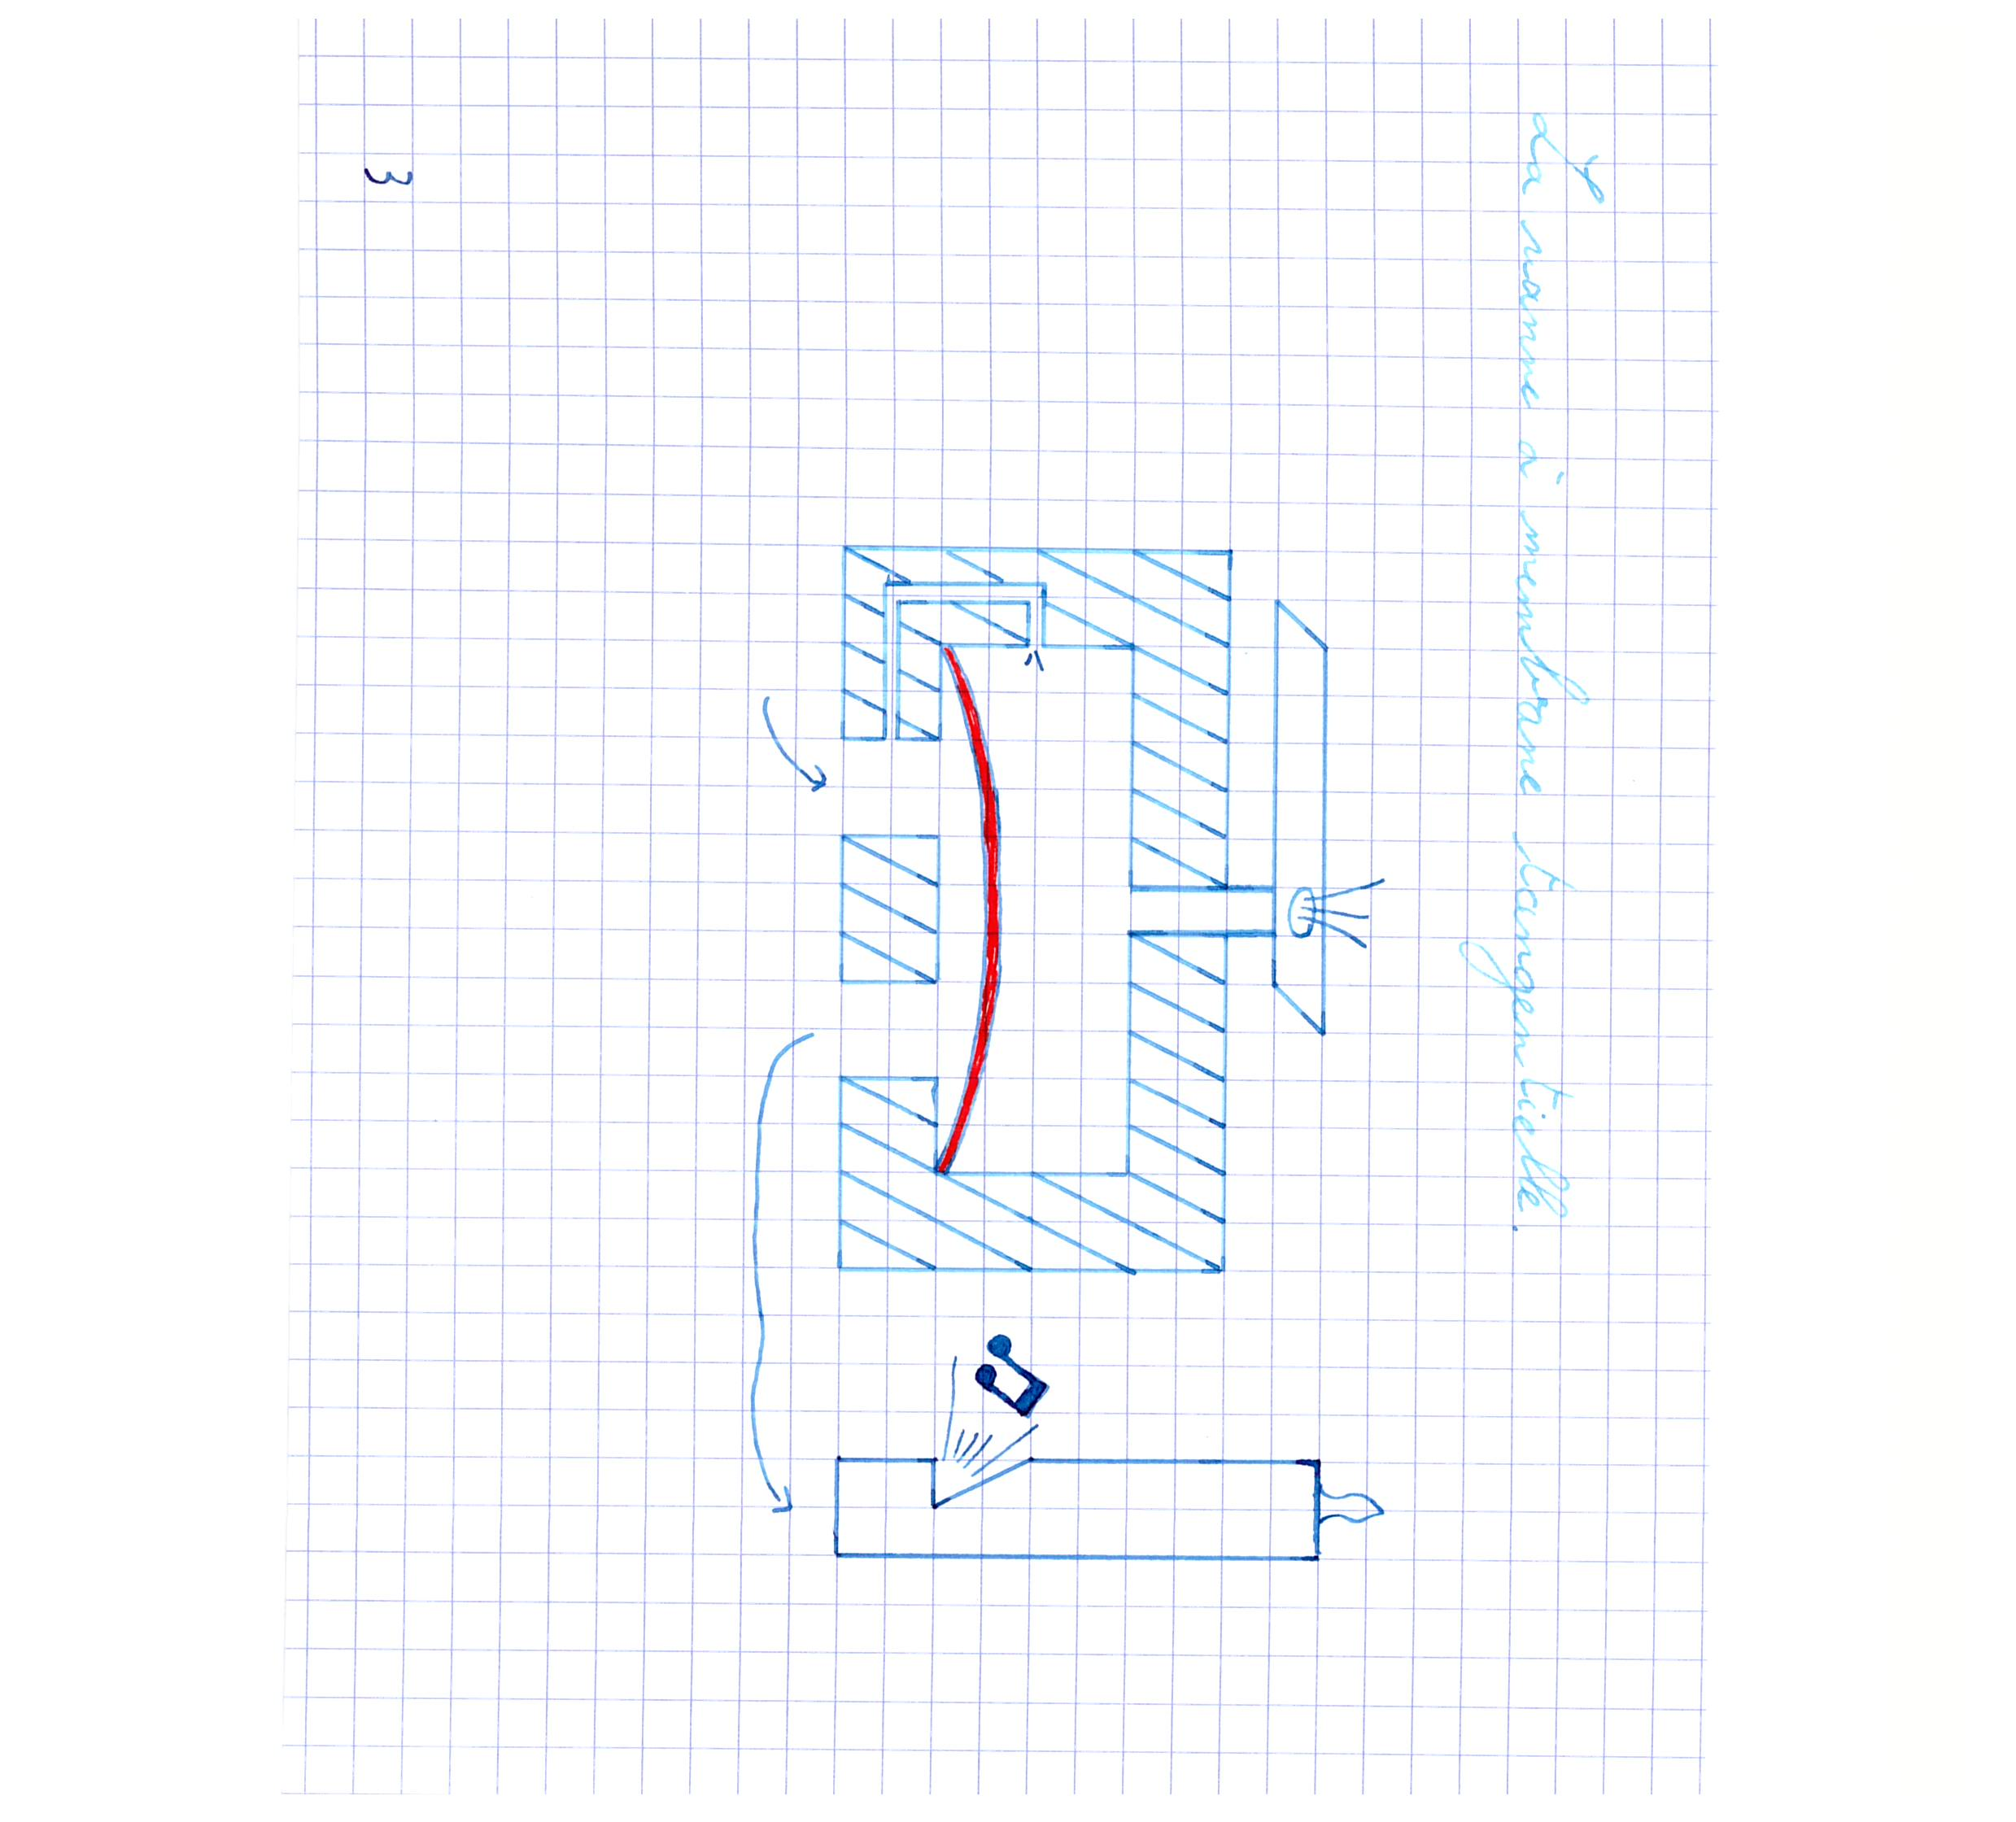 La vanne à membrane tangentielle.
3